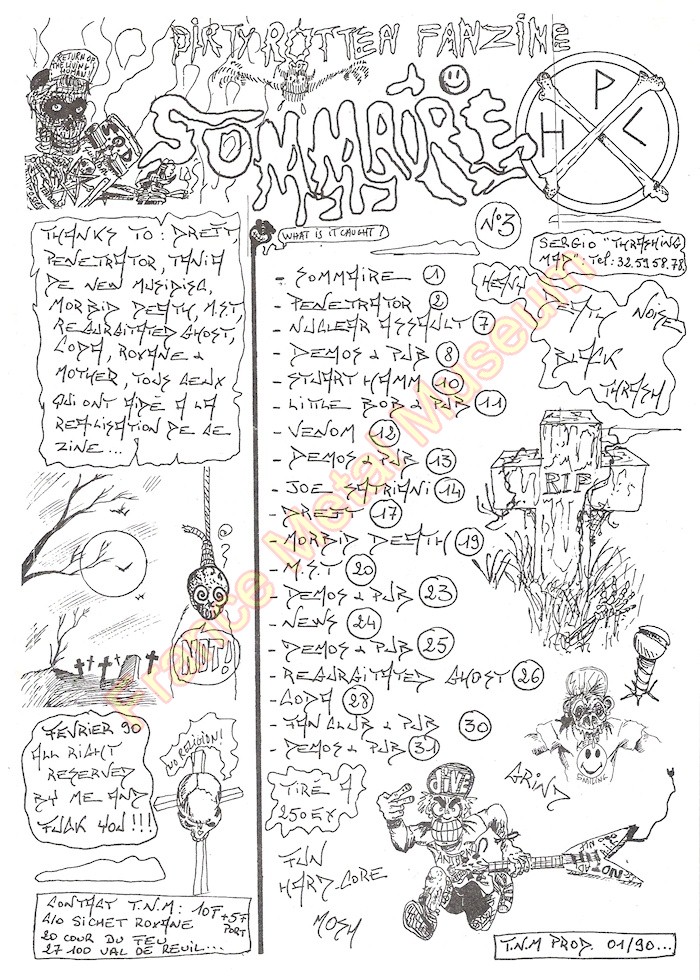 DIRTY ROTTEN FANZINE
RETURN OF
THE LIVING
HUMAN
SOMMAIRE
H P C
N°3
THANKS TO : DREFT,
PENETRATOR, TANIA
DE NEW MUSIDISC,
MORBID DEATH, M.S.T
REGURGITATED GHOST,
CODA, ROXANE &
MOTHER, TOUS CEUX
QUI ONT AIDÉ A LA
REALISATION DE CE
ZINE...
WHAT IS IT CAUGHT ?
- SOMMAIRE 1
- PENETRATOR 2
- NUCLEAR ASSAULT 7
- DEMOS & PUB 8
- STUART HAMM 10
- LITTLE BOB & PUB 11
- VENOM 12
- DEMOS & PUB 13
- JOE SATRIANI 14
- DREFT 17
- MORBID DEATH 19
- M.S.T 20
- DEMOS & PUB 23
- NEWS 24
- DEMOS & PUB 25
- REGURGITATED GHOST 26
- CODA 28
- FAN CLUB & PUB 30
- DEMOS & PUB 31
SERGIO "THRASHING
MAD": TEL: 32.59.58.78.
HEAVY
DEATH NOISE
BLACK
THRASH
RIP
?
NOT!
FEVRIER 90
ALL RIGHT
RESERVED
BY ME AND
FUCK YOU !!!
NO RELIGION!
TIRE A
250 EX
FUN
HARD-CORE
MOSH
DIVE
GRIND
CONTACT T.N.M : 10F +5F
PORT
C/O SICHET ROXANE
20 COUR DU FEU
27 100 VAL DE REUIL...
T.N.M PROD. 01/90...
France Metal Museum